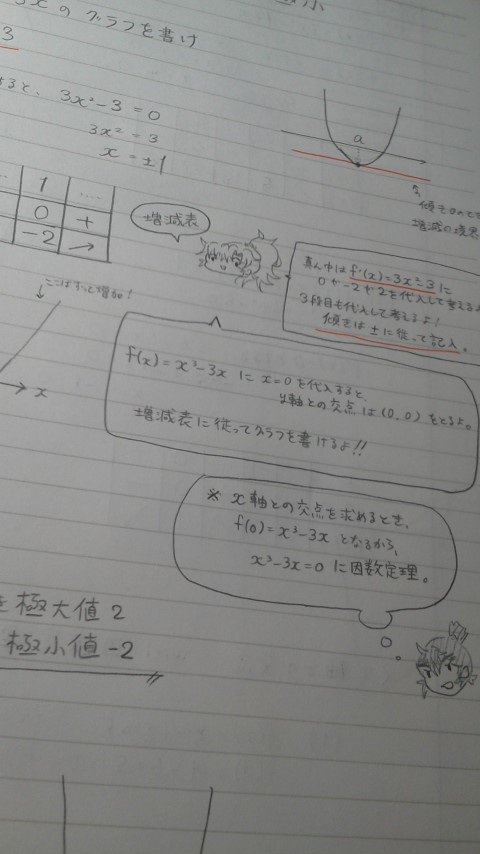 小
3xのグラフを書け
3
すると、3x²-3=0
3x²=3
x=±1
… 1 ….
0 +
-2 →
増減表
a
傾き0のとき
増減の境界
真ん中はf'(x)=3x²-3に
0や-2や2を代入して考えるよ
3段目も代入して考えるよ!
傾きは±に従って記入。
ここはずっと増加!
x
f(x)=x³-3xにx=0を代入すると、
y軸との交点は(0,0)をとるよ。
増減表に従ってグラフを書けるよ!!
※ x軸との交点を求めるとき、
f(0)=x³-3xとなるから、
x³-3x=0に因数定理。
極大値2
極小値-2